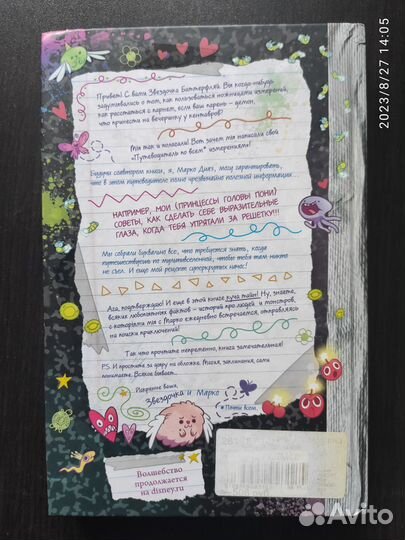 Привет! С вами Звёздочка Баттерфляй. Вы когда-нибудь
задумывались о том, как пользоваться ножницами измерений,
как расстаться с парнем, если ваш парень – демон,
что принести на вечеринку у кентавров?
Мы так и полагали! Вот зачем мы написали свой
«Путеводитель по всем* измерениям»!
Будучи соавтором книги, я, Марко Диаз, могу гарантировать,
что в этом путеводителе полно чрезвычайно полезной информации...
НАПРИМЕР, МОИ (ПРИНЦЕССЫ ГОЛОВЫ ПОНИ)
СОВЕТЫ, КАК СДЕЛАТЬ СЕБЕ ВЫРАЗИТЕЛЬНЫЕ
ГЛАЗА, КОГДА ТЕБЯ УПРЯТАЛИ ЗА РЕШЕТКУ!!!
Мы собрали буквально все, что требуется знать, когда
путешествуешь по мультивселенной, чтобы тебя там никто
не съел. И еще мой рецепт суперкрутых начос!
Ага, подтверждаю! И еще в этой книге куча тайн! Ну, знаете,
всяких любопытных фактов – историй про людей и монстров,
с которыми мы с Марко ежедневно встречаемся, отправляясь
на поиски приключений!
Так что прочтите непременно, книга замечательная!
P.S. И простите за дыру на обложке. Магия, заклинания, сами
понимаете. Всякое бывает...
Искренне ваши,
Звёздочка и Марко
* Почти всем.
Волшебство
продолжается
на disney.ru
2023/8/27 14:05
Avito